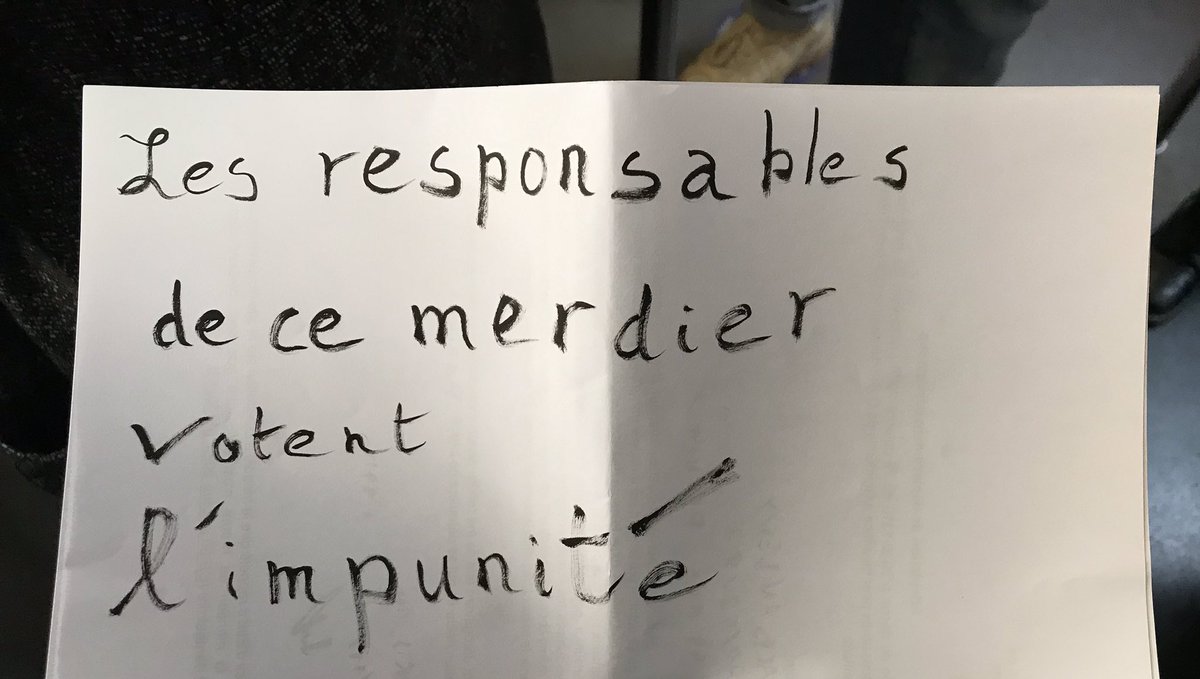 Les responsables
de ce merdier
votent
l'impunité